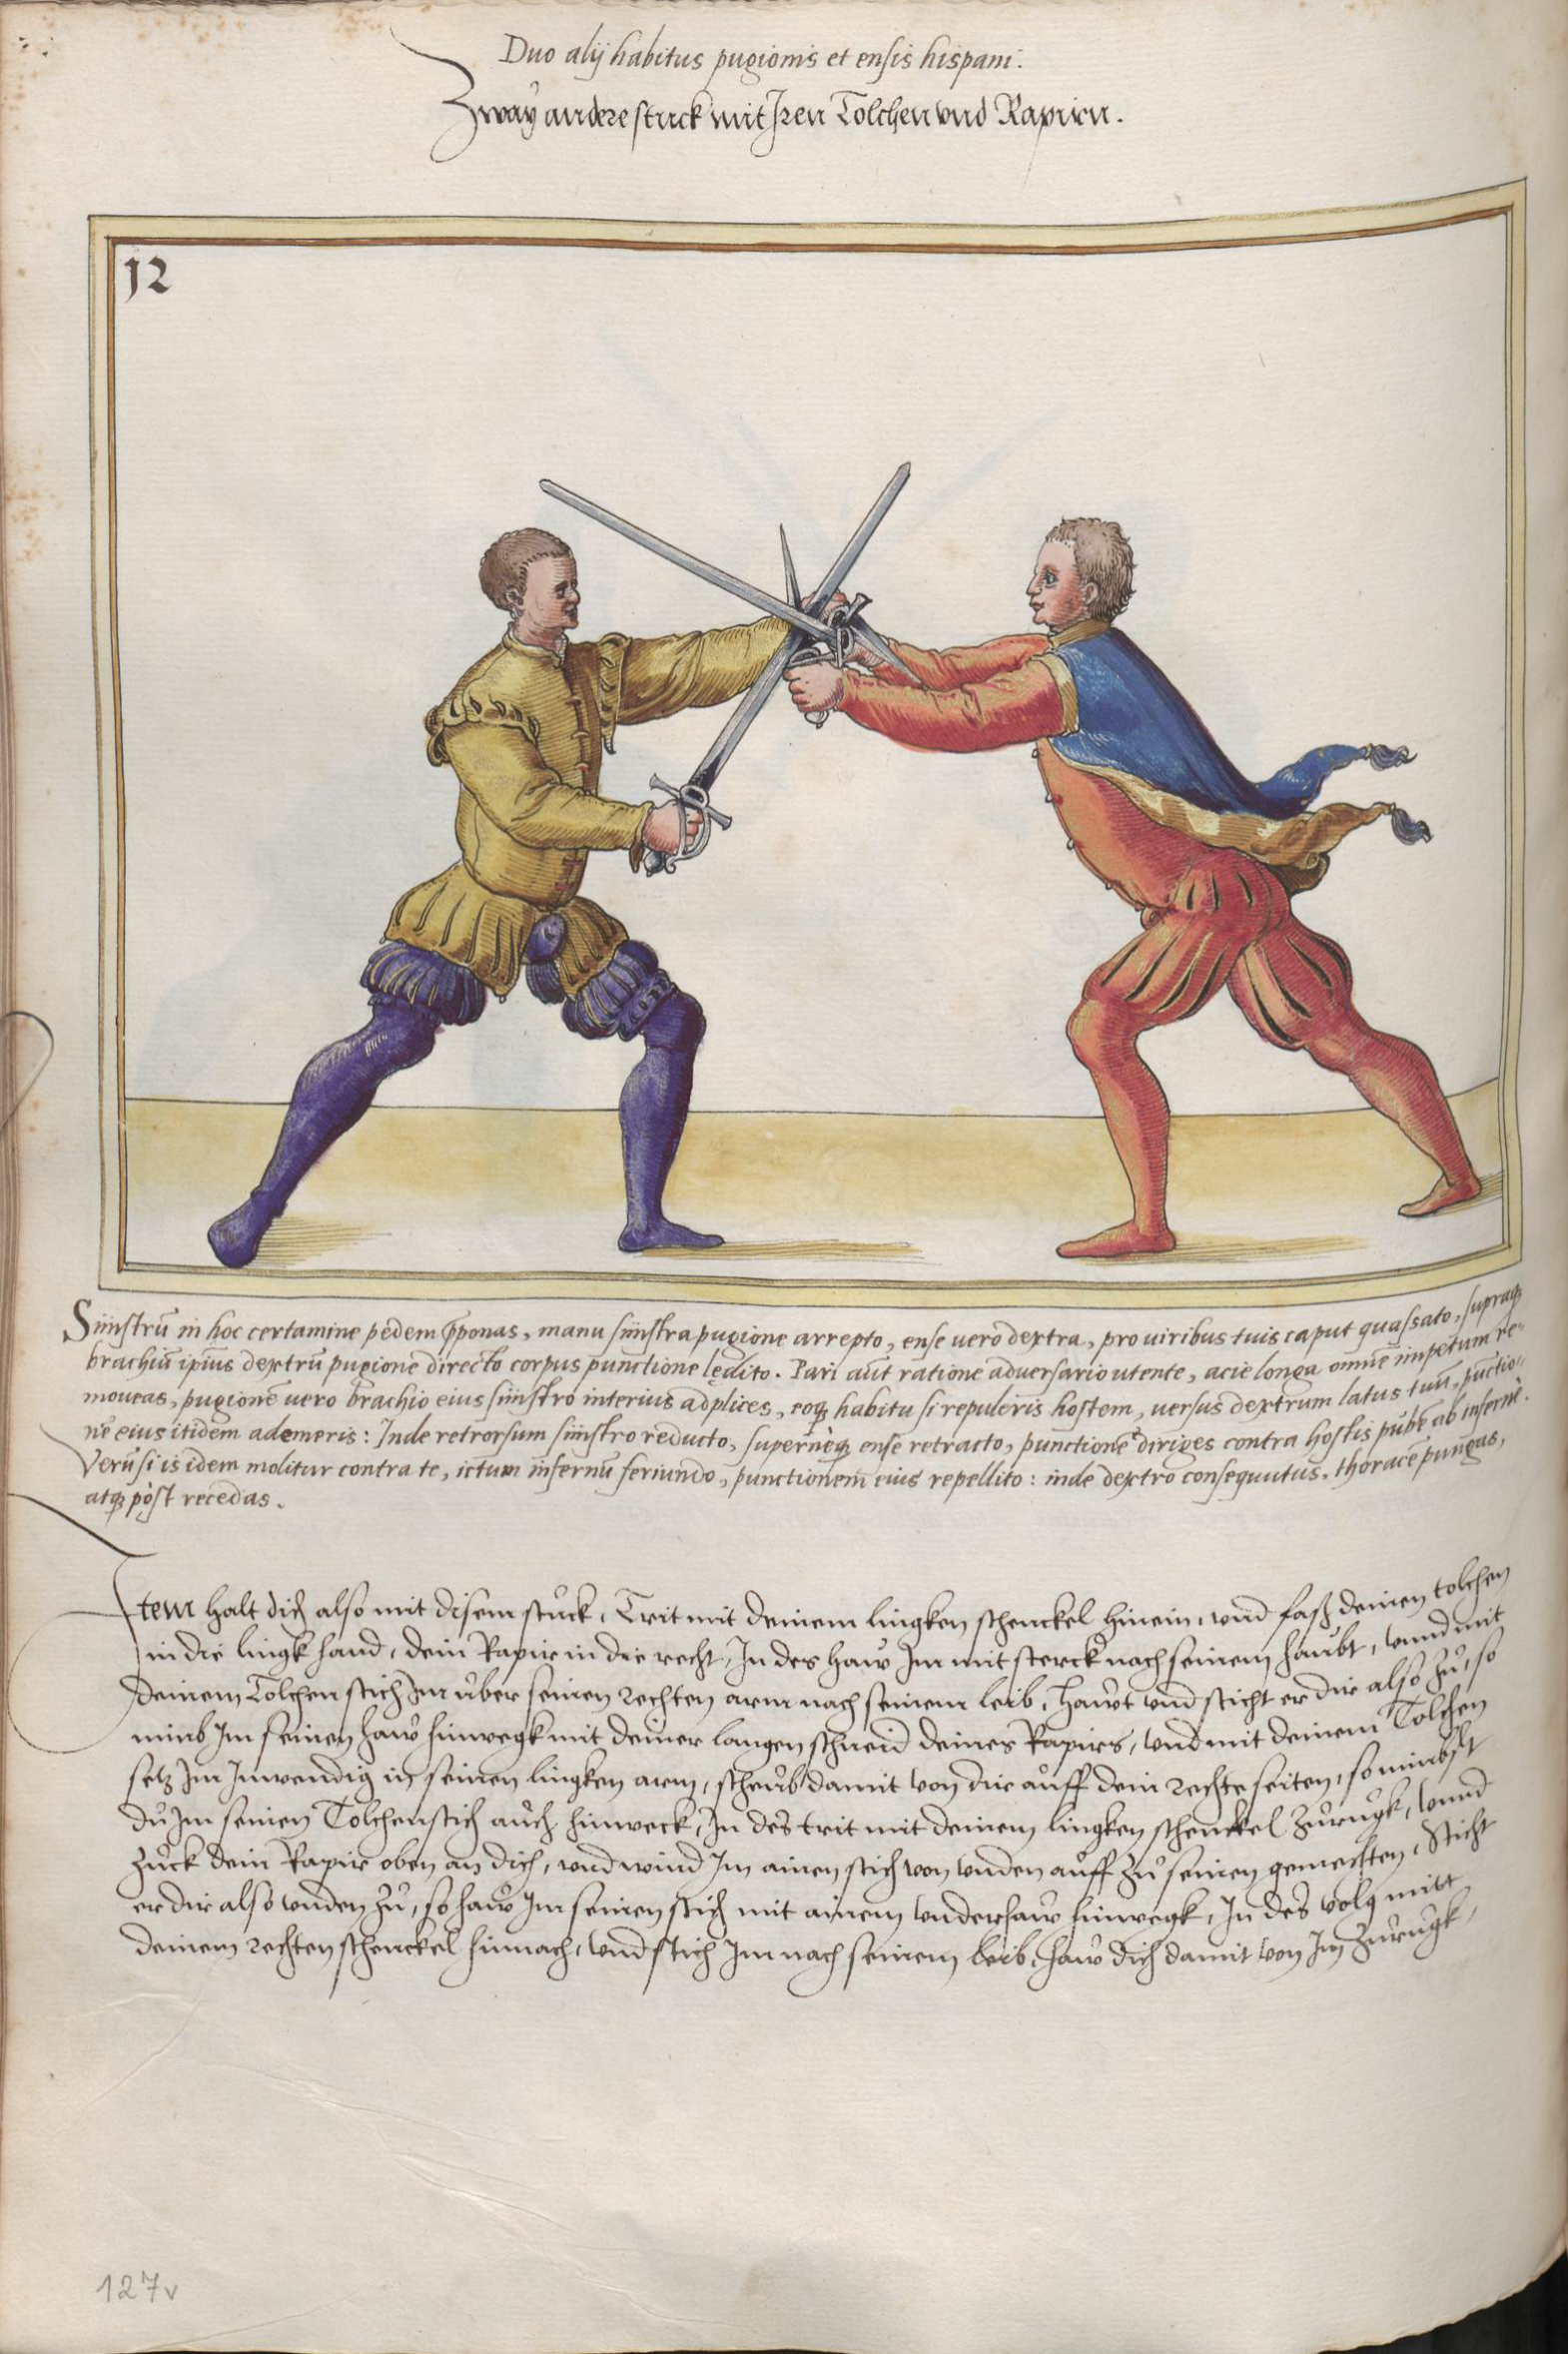 Duo alij habitus pugionis et ensis hispani.
Zway andere stuck mit Iren Tolchen vnd Rapiren.
12
Sinistrū in hoc certamine pedem ꝓponas, manu sinistra pugione arrepto, ense uero dextra, pro uiribus tuis caput quassato, supraqꝫ
brachiū ipius dextrū pugione directo corpus punctione lędito. Pari aūt ratione adversario utente, acie longa omnē impetum re-
moueas, pugionē uero brachio eius sinistro interius adplices, eoqꝫ habitu si repuleris hostem, uersus dextrum latus tuū, pūctio-
nē eius itidem ademeris: Inde retrorsum sinistro reducto, supernèqꝫ ense retracto, punctionē diriges contra hostis pubē ab infernè.
Verū si is idem molitur contra te, ictum infernū feriundo, punctionem eius repellito: inde dextro consequutus, thoracē pungas,
atqꝫ pòst recedas.
Item halt dich also mit disem stuck, Trit mit deinem lingken schenckel hinein, vnd faß deinen tolchen
in die lingk hand, dein Rapir in die recht, In des haw Im mit sterck nach seinem haubt, vnnd mit
deinem Tolchen stich Im über seinen rechten arm nach seinem leib, Hawt vnd sticht er dir also zů, so
nimb Im seinen haw hinwegk mit deiner langen schneid deines Rapirs, vnd mit deinem Tolchen
setz Im Inwendig in seinen lingken arm, scheub damit von dir auff dein rechte seiten, so nimbst
du Im seinen Tolchenstich auch hinweck, In des trit mit deinem lingken schenckel zurugk, vnnd
zuck dein Rapir oben an dich, vnd wind Im ainen stich von vnden auff zu seinen gemechten, Sticht
er dir also vnden zů, so haw Im seinen stich mit ainem vnderhaw hinwegk, In des volg mitt
deinem rechten schenckel hinnach, vnd stich Im nach seinem leib, haw dich damit von Im zurugk,
127v